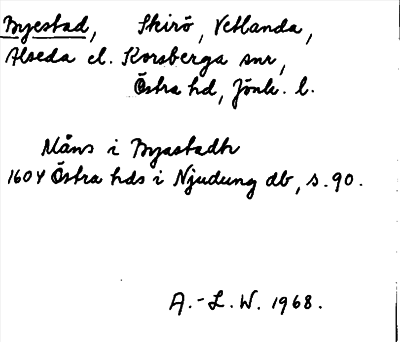 Byestad, Skirö, Vetlanda,
Alseda el. Korsberga snr,
Östra hd, Jönk. l.
Måns i Byastadh
1604 Östra hds i Njudung db, s. 90.
A.-L. W. 1968.